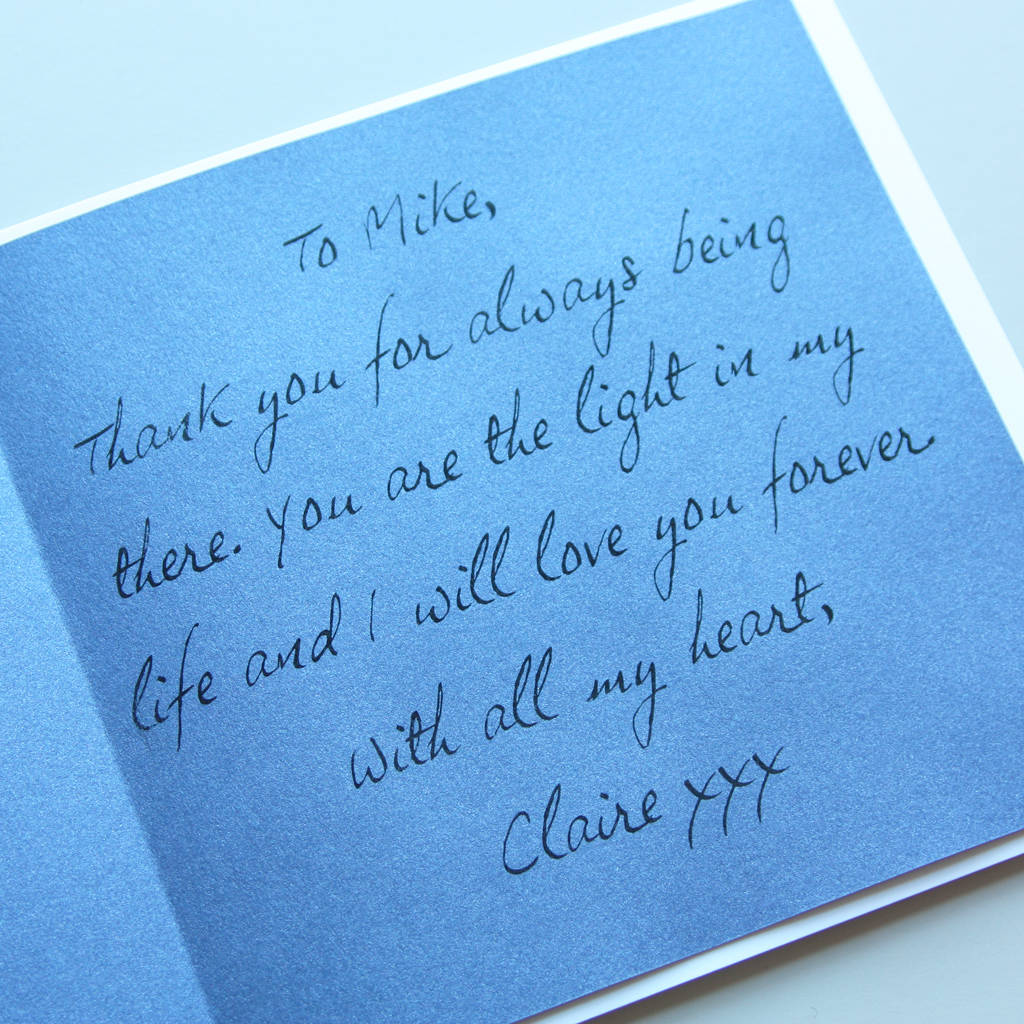 To Mike,
Thank you for always being
there. You are the light in my
life and I will love you forever.
With all my heart,
Claire xxx